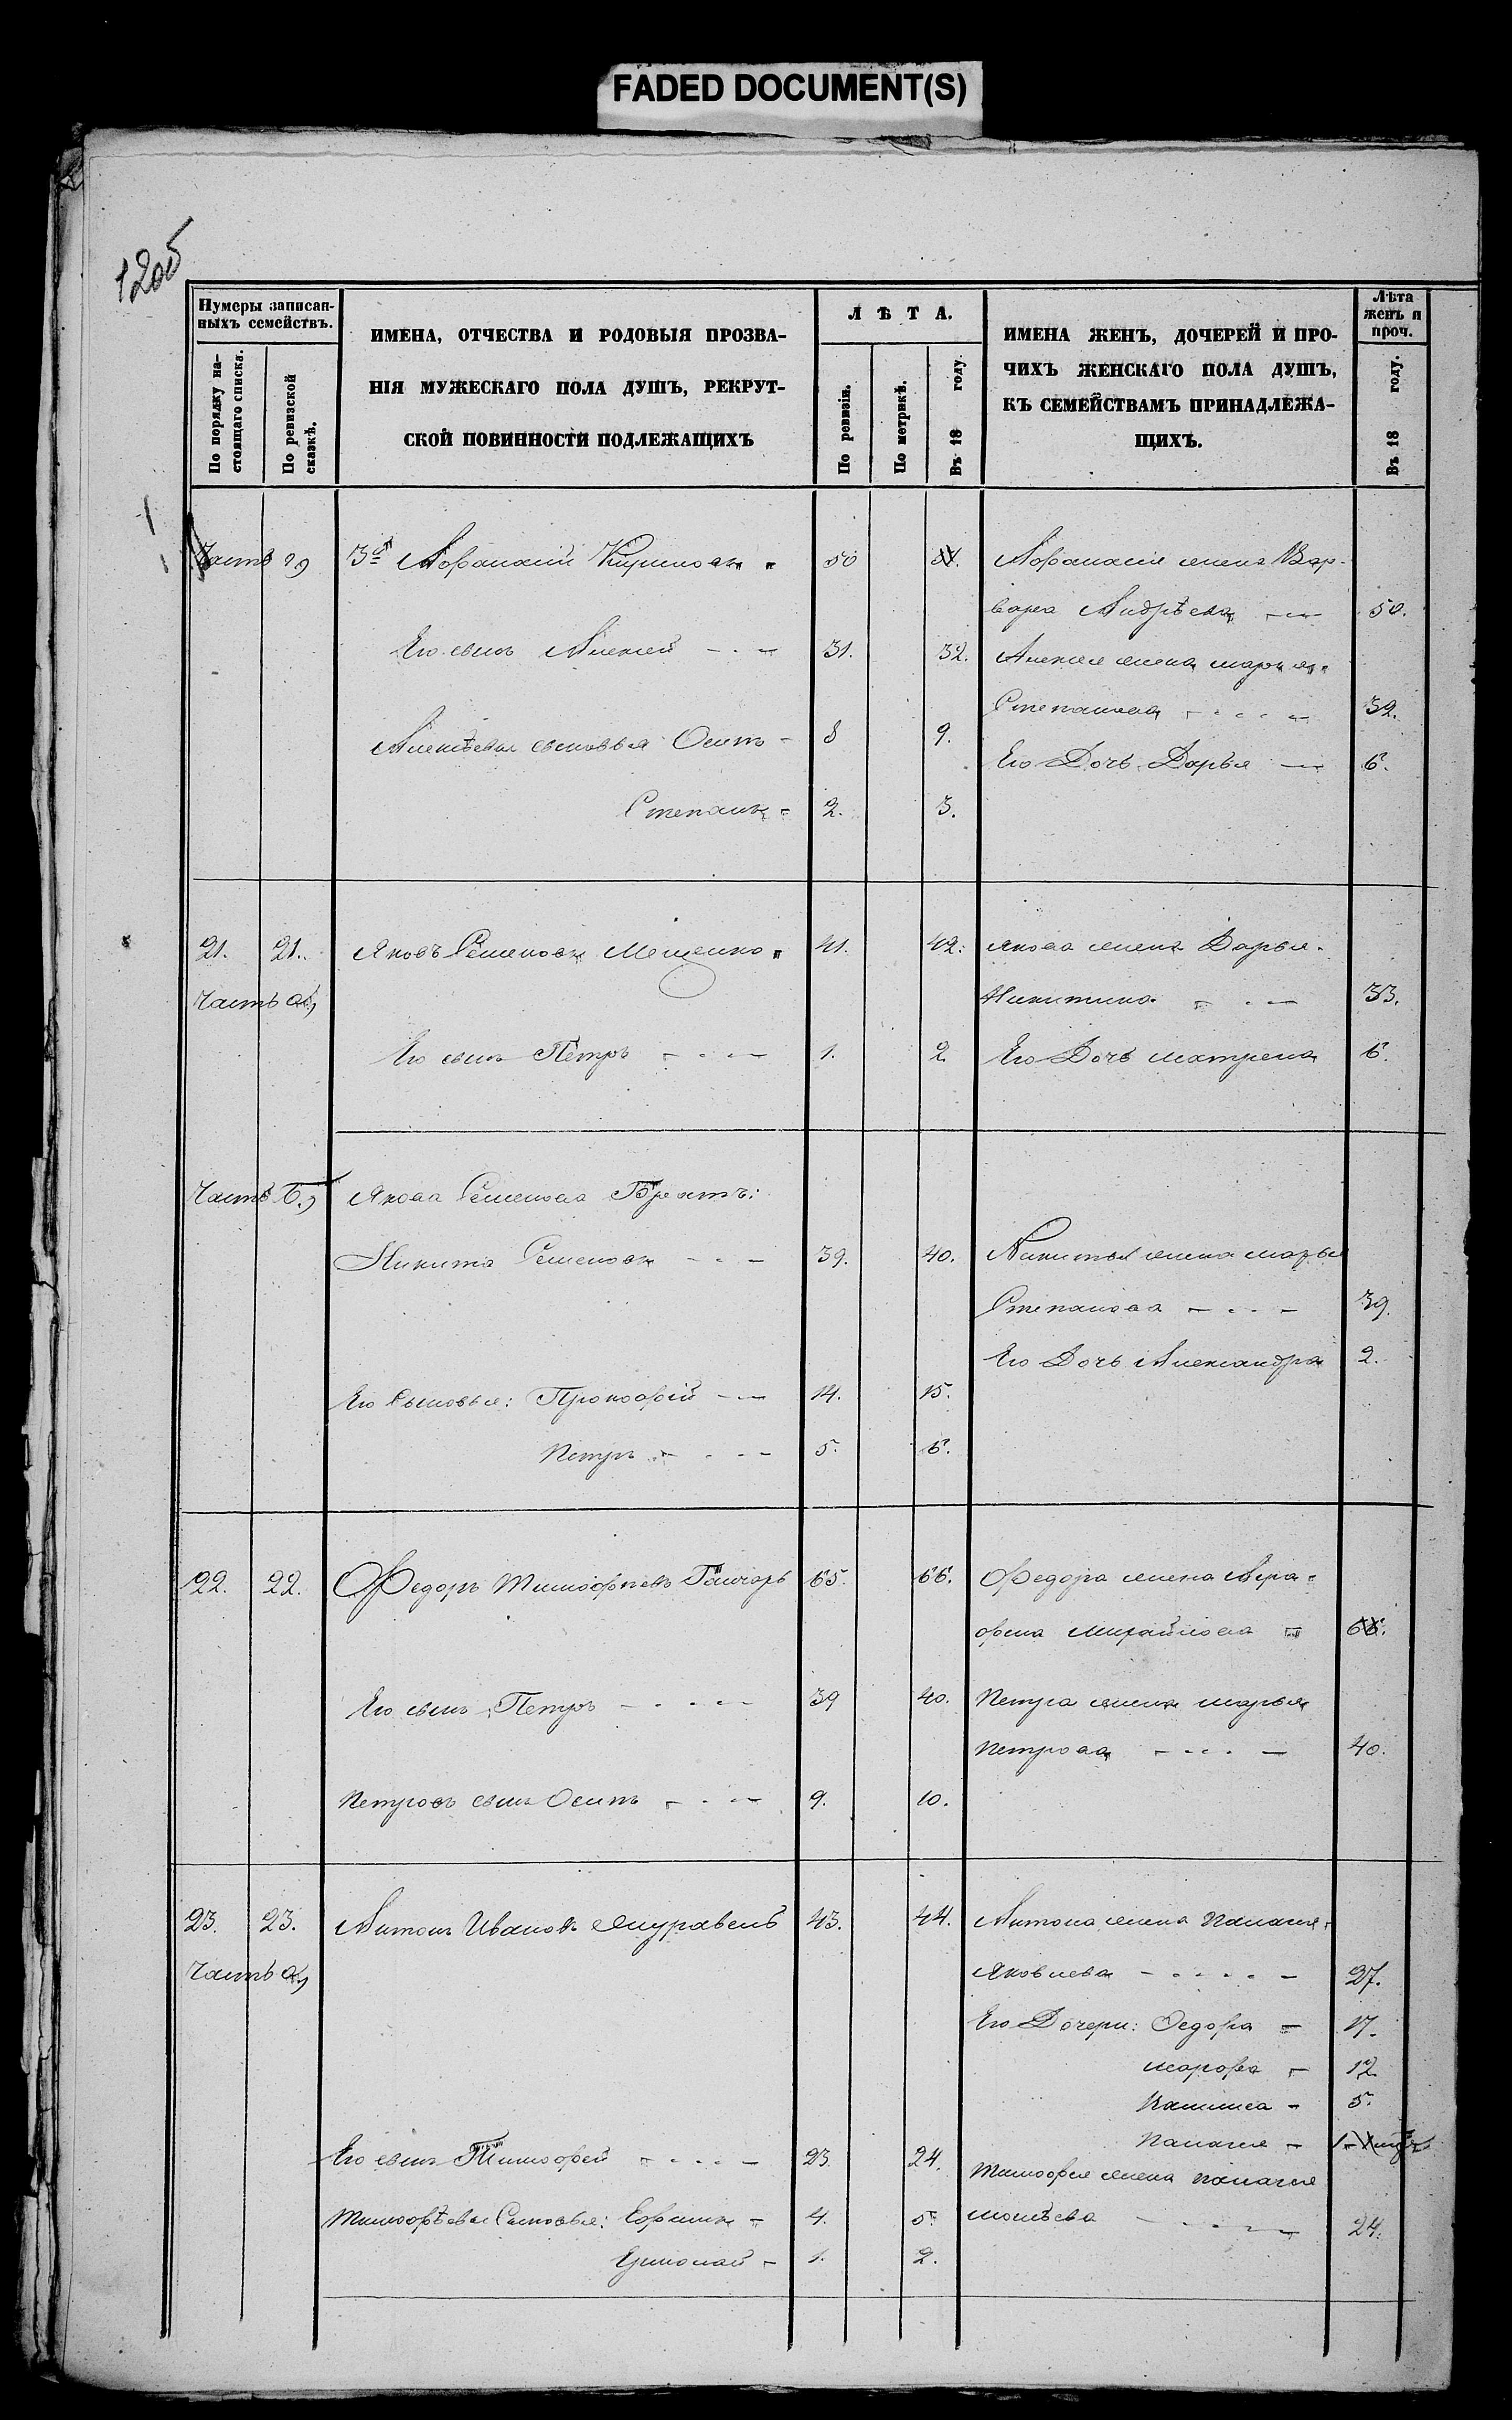 FADED DOCUMENT(S)
120об
Нумеры записан-
ныхъ семействъ.
По порядку на-
стоящаго списка.
По ревизской
сказкѣ.
ИМЕНА, ОТЧЕСТВА И РОДОВЫЯ ПРОЗВА-
НІЯ МУЖЕСКАГО ПОЛА ДУШЪ, РЕКРУТ-
СКОЙ ПОВИННОСТИ ПОДЛЕЖАЩИХЪ
ЛѢТА.
По ревизіи.
По метрикѣ.
Въ 18 году.
ИМЕНА ЖЕНЪ, ДОЧЕРЕЙ И ПРО-
ЧИХЪ ЖЕНСКАГО ПОЛА ДУШЪ,
КЪ СЕМЕЙСТВАМЪ ПРИНАДЛЕЖА-
ЩИХЪ.
Лѣта
женъ и
проч.
Въ 18 году.
Часть Афанасій 50
Афанасія жена Вар-
вара Андрѣева 50.
Его сынъ Алексей 31. 32.
Алексея жена
Степанова 32.
Алексѣевы сыновья Осипъ 8 9.
Его Дочь Дарья 6.
Степанъ 2. 3.
21. 21. Яковъ Семеновъ Мещенко 41. 42.
Якова жена Дарья
Часть а,
Никитина 33.
Его сынъ Петръ 1. 2
Его Дочь Матрена 6.
Часть Б, Якова Семенова Братъ:
Никита Семеновъ 39. 40.
Никиты жена Марья
Степанова 39.
Его Дочь Александра 2.
Его Сыновья: Прокофій 14. 15.
Петръ 5. 6.
22. 22. Федоръ Тимофѣевъ Гончарь 65. 66.
Федора жена Агра-
фена Михайлова
Его сынъ Петръ 39 40.
Петра жена Марья
Петрова 40.
Петровъ сынъ Осипъ 9. 10.
23. 23. Антонъ Ивановъ Журавель 43. 44.
Антона жена Палагея
Часть а,
Яковлева 37.
Его Дочери: Федора 17.
Марфа 12.
5.
Палагея
Его сынъ Тимофей 23. 24.
Тимофея жена Палагея
Тимофѣевы Сыновья: Ефимъ 4. 5.
24.
1. 2.